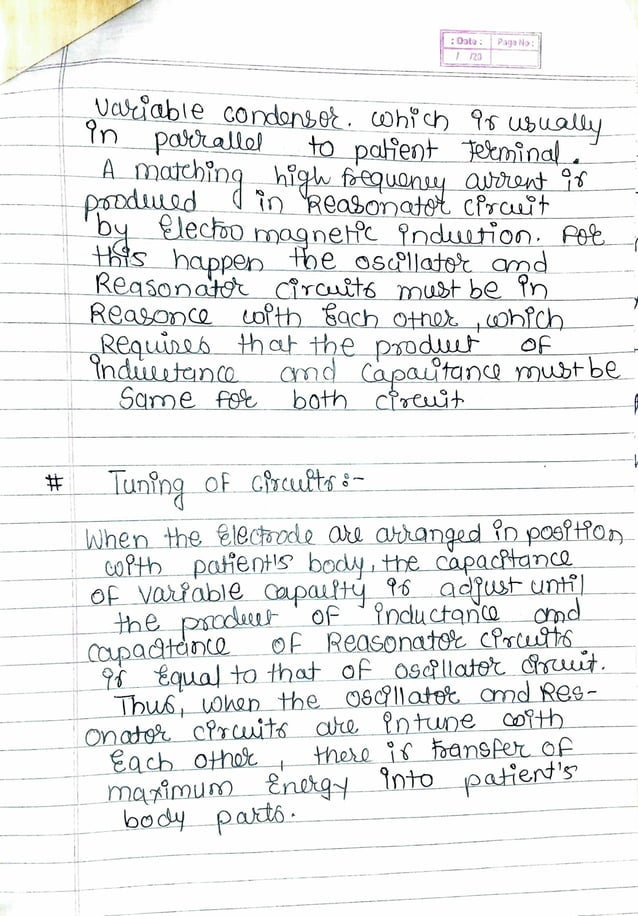 : Date : Page No :
/ /20
Variable condenser. which is usually
in parrallel to patient Terminal.
A matching high frequency current is
produced in Reasonator circuit
by Electro magnetic induction. For
this happen the oscillator and
Reasonator circuits must be in
Reasonce with Each other, which
Requires that the product of
inductance and capacitance must be
Same for both circuit
# Tuning of circuits :-
When the Electrode are arranged in position
with patient's body, the capacitance
of variable capacity is adjust until
the product of inductance and
capacitance of Reasonator circuits
is Equal to that of oscillator circuit.
Thus, when the oscillator and Res-
onator circuits are intune with
Each other, there is transfer of
maximum Energy into patient's
body parts.